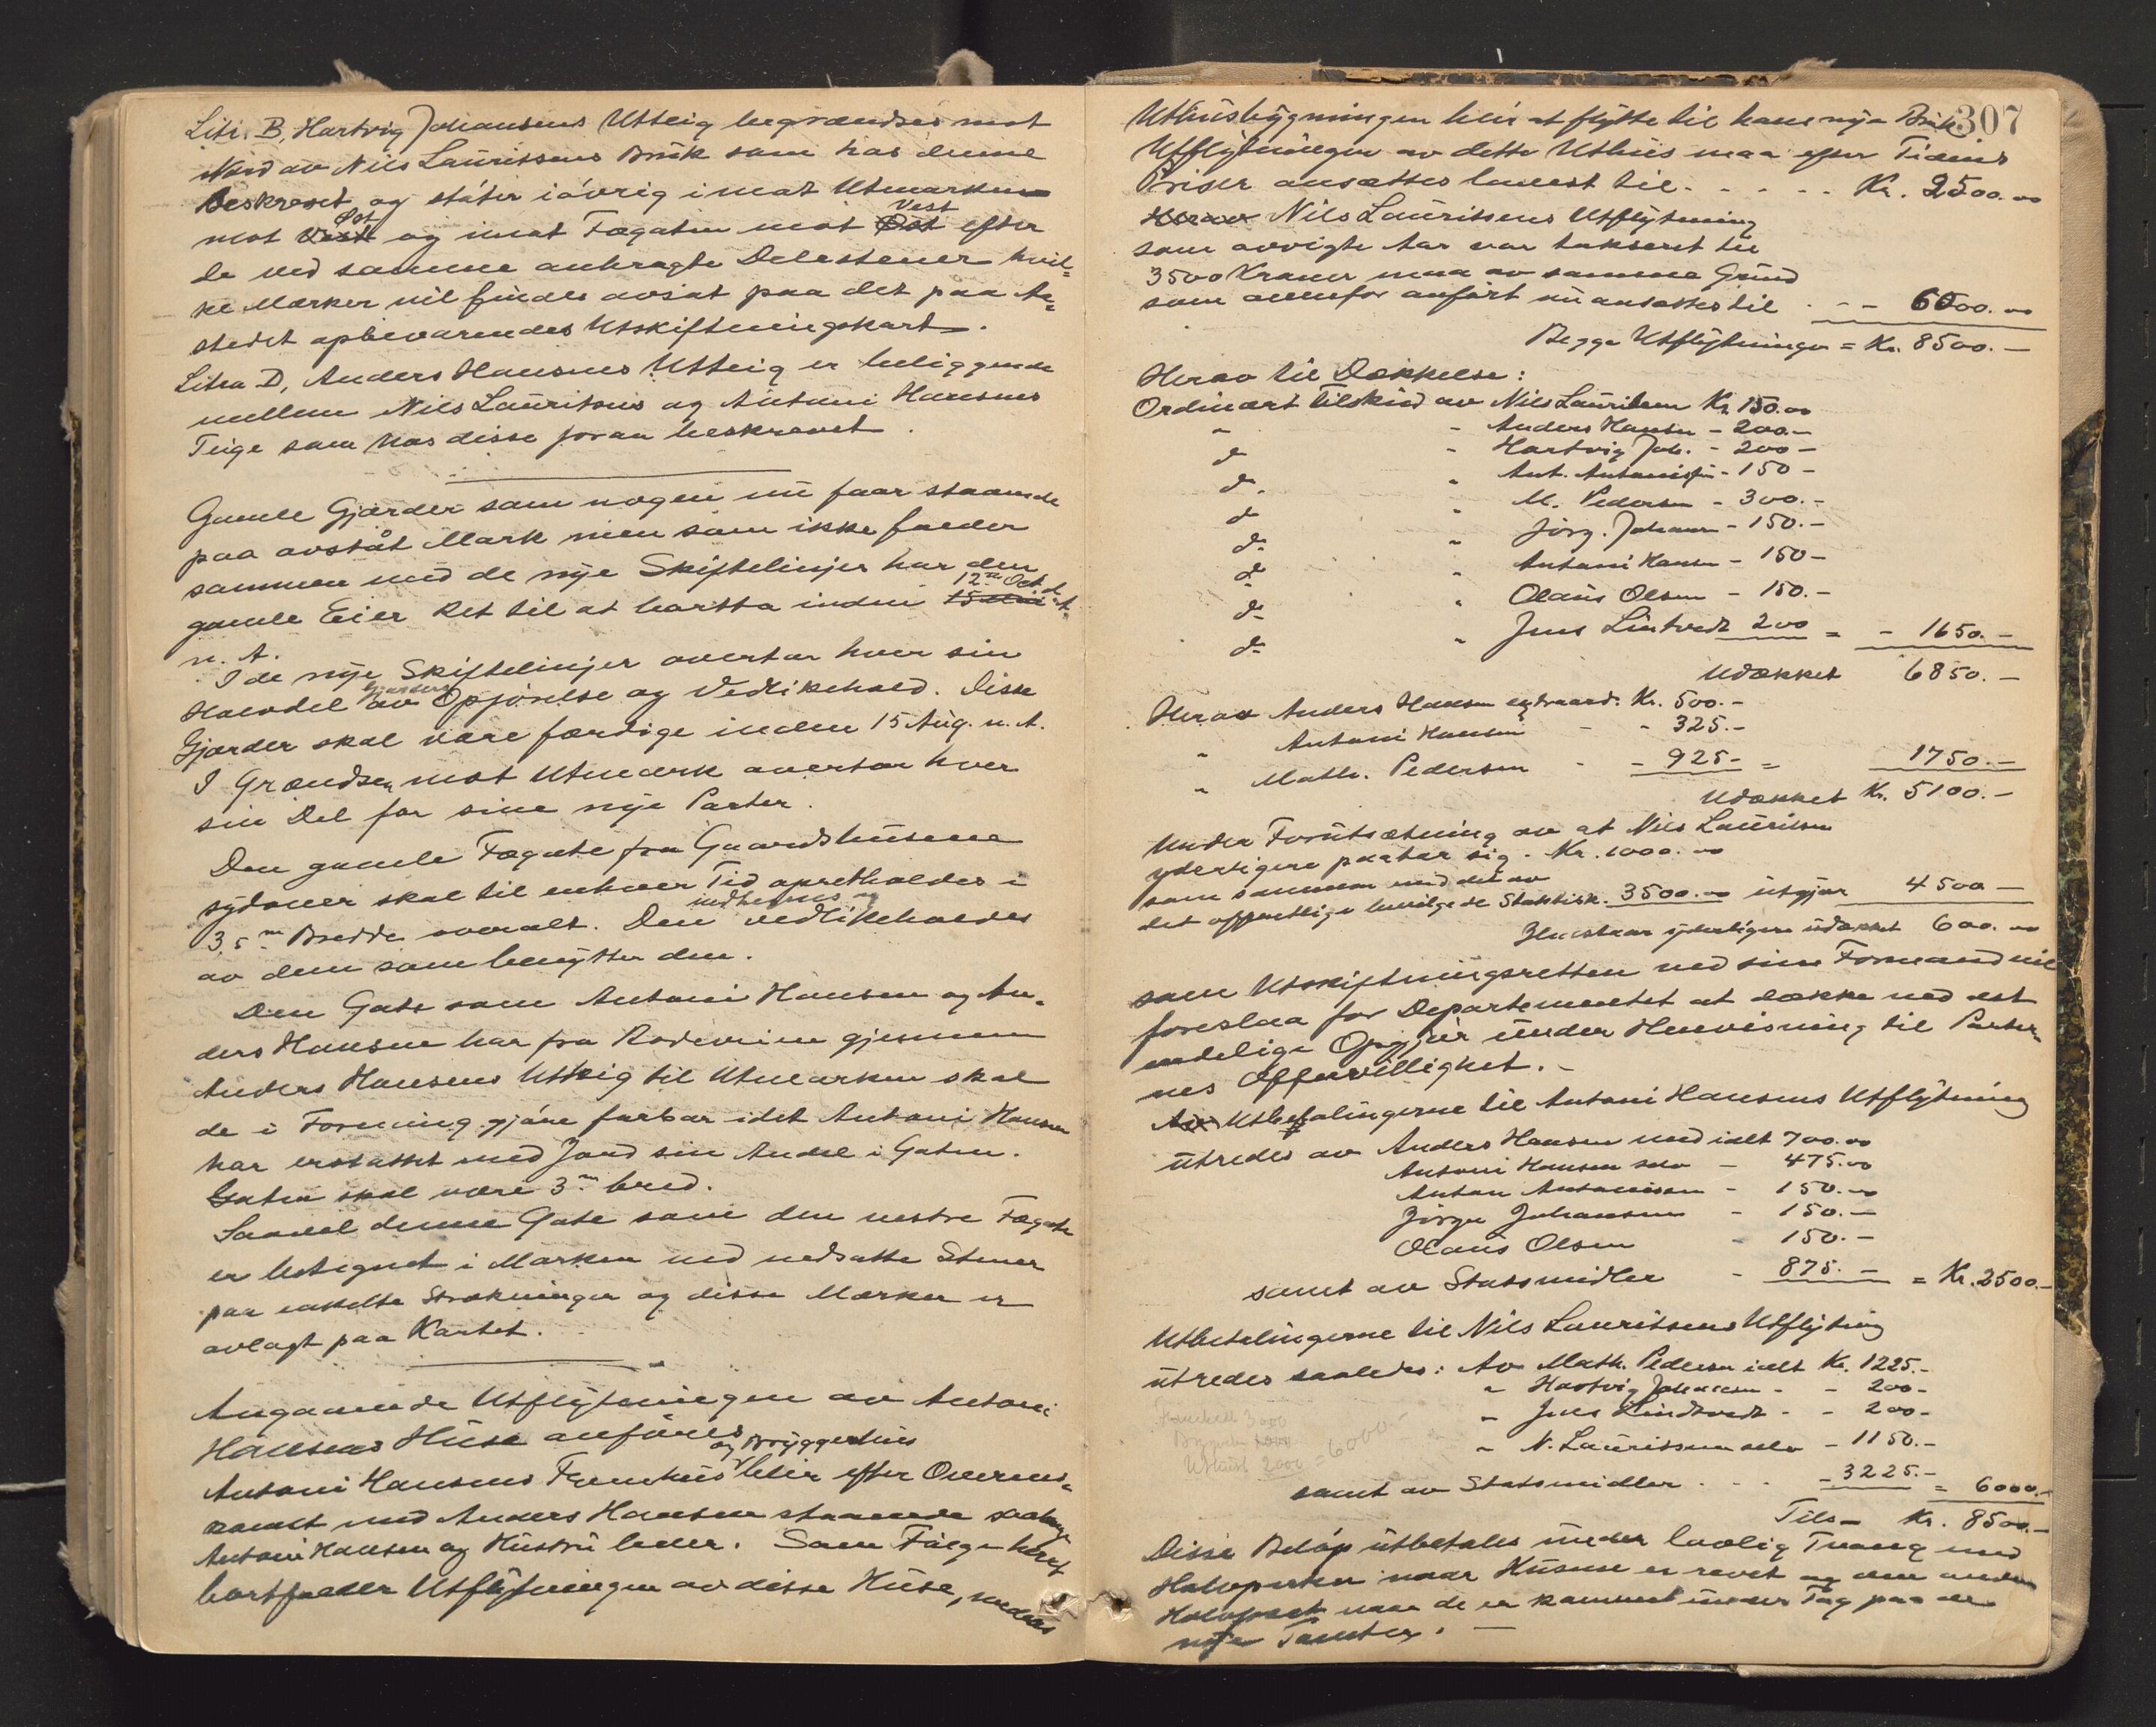 Litr. B, Hartvig Johansens Utteig begrændses mot
Nord av Nils Lauritsens Bruk som hos denne
beskrevet og støter iøvrig imot Utmarken
mot Vest Øst og imot Fægaten mot Øst Vest efter
de ved samme anbragte Delestener hvil-
ke Mærker vil findes avsat paa det paa Aa-
stedet opbevarendes Utskiftningskart.
Litra D, Anders Hansens Utteig er beliggende
mellem Nils Lauritsens og Antoni Hansens
Teige som hos disse foran beskrevet.
Gamle Gjærder som nogen nu faar staaende
paa avståt Mark men som ikke falder
sammen med de nye Skiftelinjer har den
gamle Eier Ret til at bortta inden 15 Mai 12te Oct.
n. A.
I de nye Skiftelinjer overtar hver sin
Halvdel av Gjærdets Opførelse og Vedlikehold. Disse
Gjærder skal være færdige inden 15 Aug. n. A.
I Grændsen mot Utmark overtar hver
sin Del for sine nye Parter.
Den gamle Fægate fra Gaardshusene
sydover skal til enhver Tid opretholdes i
3,5 m Bredde overalt. Den vedlikeholdes
av dem som benytter den.
Den Gate som Antoni Hansen og An-
ders Hansen har fra Rodeveien gjennem
Anders Hansens Utteig til Utmarken skal
de i Forening gjøre farbar idet Antoni Hansen
har erstattet med Jord sin Andel i Gaten.
Gaten skal være 3 m bred.
Saavel denne Gate som den vestre Fægate
er betegnet i Marken med nedsatte Stener
paa enkelte Strækninger og disse Mærker er
avlagt paa Kartet.
Angaaende Utflytningen av Antoni
Hansens Huse anføres
Antoni Hansens Framhus og Bryggerhus blir efter Overens-
komst med Anders Hansen staaende saalænge
Antoni Hansen og Hustru lever. Som Følge herav
bortfalder Utflytningen av disse Huse, medens
307
Uthusbygningen blir at flytte til hans nye Bruk
Utflytningen av dette Uthus maa efter Tidens
Priser ansættes lavest til - - - - - Kr. 2500.00
Herav Nils Lauritsens Utflytning
som avvigte Aar var takseret til
3500 Kroner maa av samme Grund
som ovenfor anført nu ansættes til - - - 6000.00
Begge Utflytninger = Kr. 8500.-
Herav til Dækkelse:
Ordinært Tilskud av Nils Lauritsen Kr. 150.00
" - Anders Hansen - 200.-
do - Hartvig Joh. - 200 -
do. " Ant. Antonisen - 150 -
do " M. Pedersen - 300.-
do " Jørg. Johansen - 150.-
do " Antoni Hansen - 150 -
do " Olaus Olsen - 150.-
do " Jens Lindtvedt 200 = - 1650.-
Udækket 6850.-
Herav Anders Hansen Kr. 500.-
" Antoni Hansen - - 325.-
" Math. Pedersen - - 925- = 1750.-
Udækket Kr. 5100.-
Under Forutsætning av at Nils Lauritsen
yderligere paatar sig - Kr. 1000.00
som sammen med det av
det offentlige bevilgede Statstilsk. 3500.00 utgjør 4500 -
Gjenstaar yderligere udækket 600.00
som Utskiftningsretten ved sin Formand vil
foreslaa for Departementet at dække ved det
endelige Opgjør under Henvisning til Parter-
nes Offervillighet.-
Utbetalingerne til Antoni Hansens Utflytning
utredes av Anders Hansen med ialt 700.00
Antoni Hansen selv - 475.00
Anton Antonisen - 150.00
Jørgen Johansen - 150.-
Olaus Olsen - 150.-
samt av Statsmidler - 875.- = Kr. 2500.-
Utbetalingerne til Nils Lauritsens Utflytning
utredes saaledes: Av Math. Pedersen ialt Kr. 1225.-
" Hartvig Johansen - - 200-
" Jens Lindtvedt - - 200-
" N. Lauritssen selv - 1150.-
3000
Uthus 2000 = 6000.-
samt av Statsmidler - - - 3225.- = 6000.-
Tils- Kr. 8500.-
Disse Beløp utbetales under lovlig Tvang med
Halvparten naar Husene er revet og den anden
Halvpart naar de er kommet under Tag paa de
nye Tomter.-